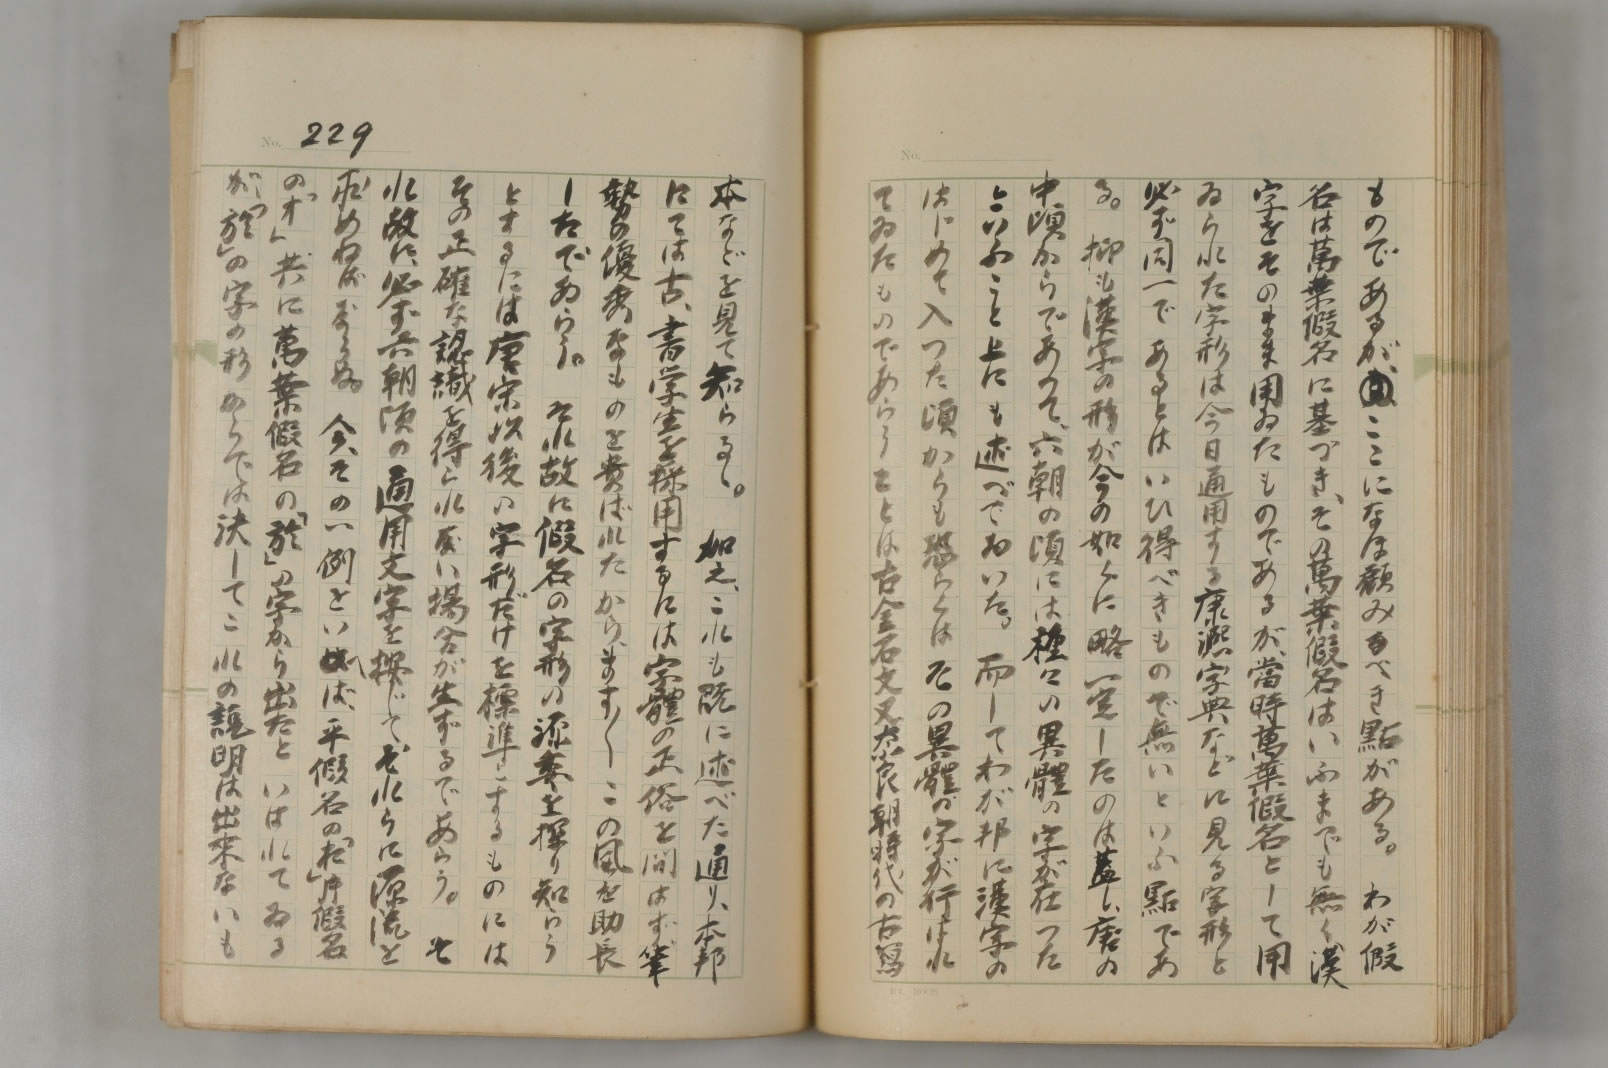 ものであるが、ここになほ顧みるべき點がある。わが假
名は萬葉假名に基づき、その萬葉假名はいふまでも無く漢
字をそのまま用ゐたものであるが、當時萬葉假名として用
ゐられた字形は今日通用する康熙字典などに見る字形と
必ず同一であるとはいひ得べきもので無いといふ點であ
る。抑も漢字の形が今の如くに略一定したのは蓋し、唐の
中頃からであつて、六朝の頃には種々の異體の字が在つた
といふこと上にも述べておいた。而してわが邦に漢字の
はじめて入つた頃からも恐らくは その異體の字が行はれ
てゐたものであらうことは古金石文又奈良朝時代の古寫
No. 229
本などを見て知らるる。加之、これも既に述べた通り、本邦
にては古、書学生を採用するには字體の正俗を問はず筆
勢の優秀なものを貴ばれたから、ますくこの風を助長
したでゐらう。それ故に假名の字形の源委を探り知らう
とするには唐宋以後の字形だけを標準とするものには
その正確な認識を得られない場合が生ずるであらう。そ
れ故に、必ず六朝頃の通用文字を探じてそれらに源流を
求めねばならぬ。今、その一例をいはば、平假名の「お」片假名
の「オ」共に萬葉假名の「於」の字から出たといはれてゐる
が、「於」の字の形からでは決してこれの説明は出來ないも
No.